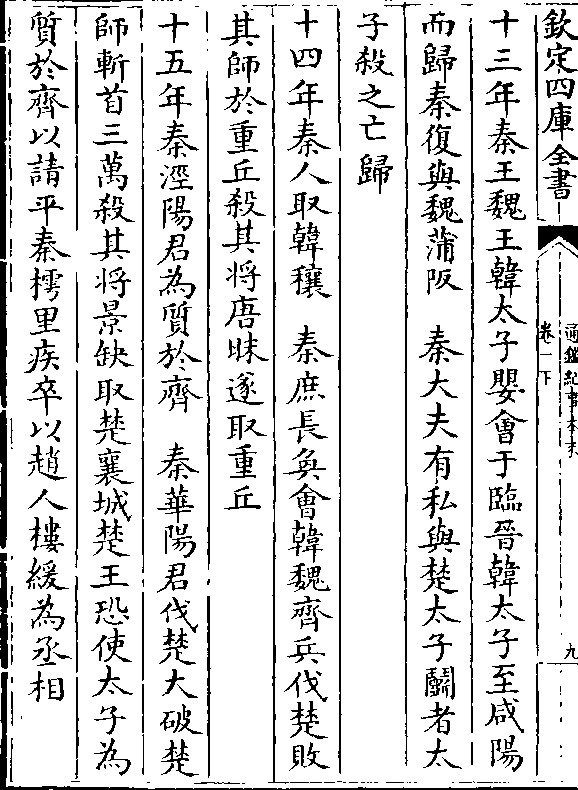 欽定四庫全書
通鑑紀事本末
卷一下
九
十三年秦王魏王韓太子嬰會于臨晉韓太子至咸陽
而歸秦復與魏蒲阪　秦大夫有私與楚太子鬬者太
子殺之亡歸
十四年秦人取韓穰　秦庶長奐會韓魏齊兵伐楚敗
其師於重丘殺其將唐昧遂取重丘
十五年秦涇陽君為質於齊　秦華陽君伐楚大破楚
師斬首三萬殺其將景缺取楚襄城楚王恐使太子為
質於齊以請平秦樗里疾卒以趙人樓緩為丞相